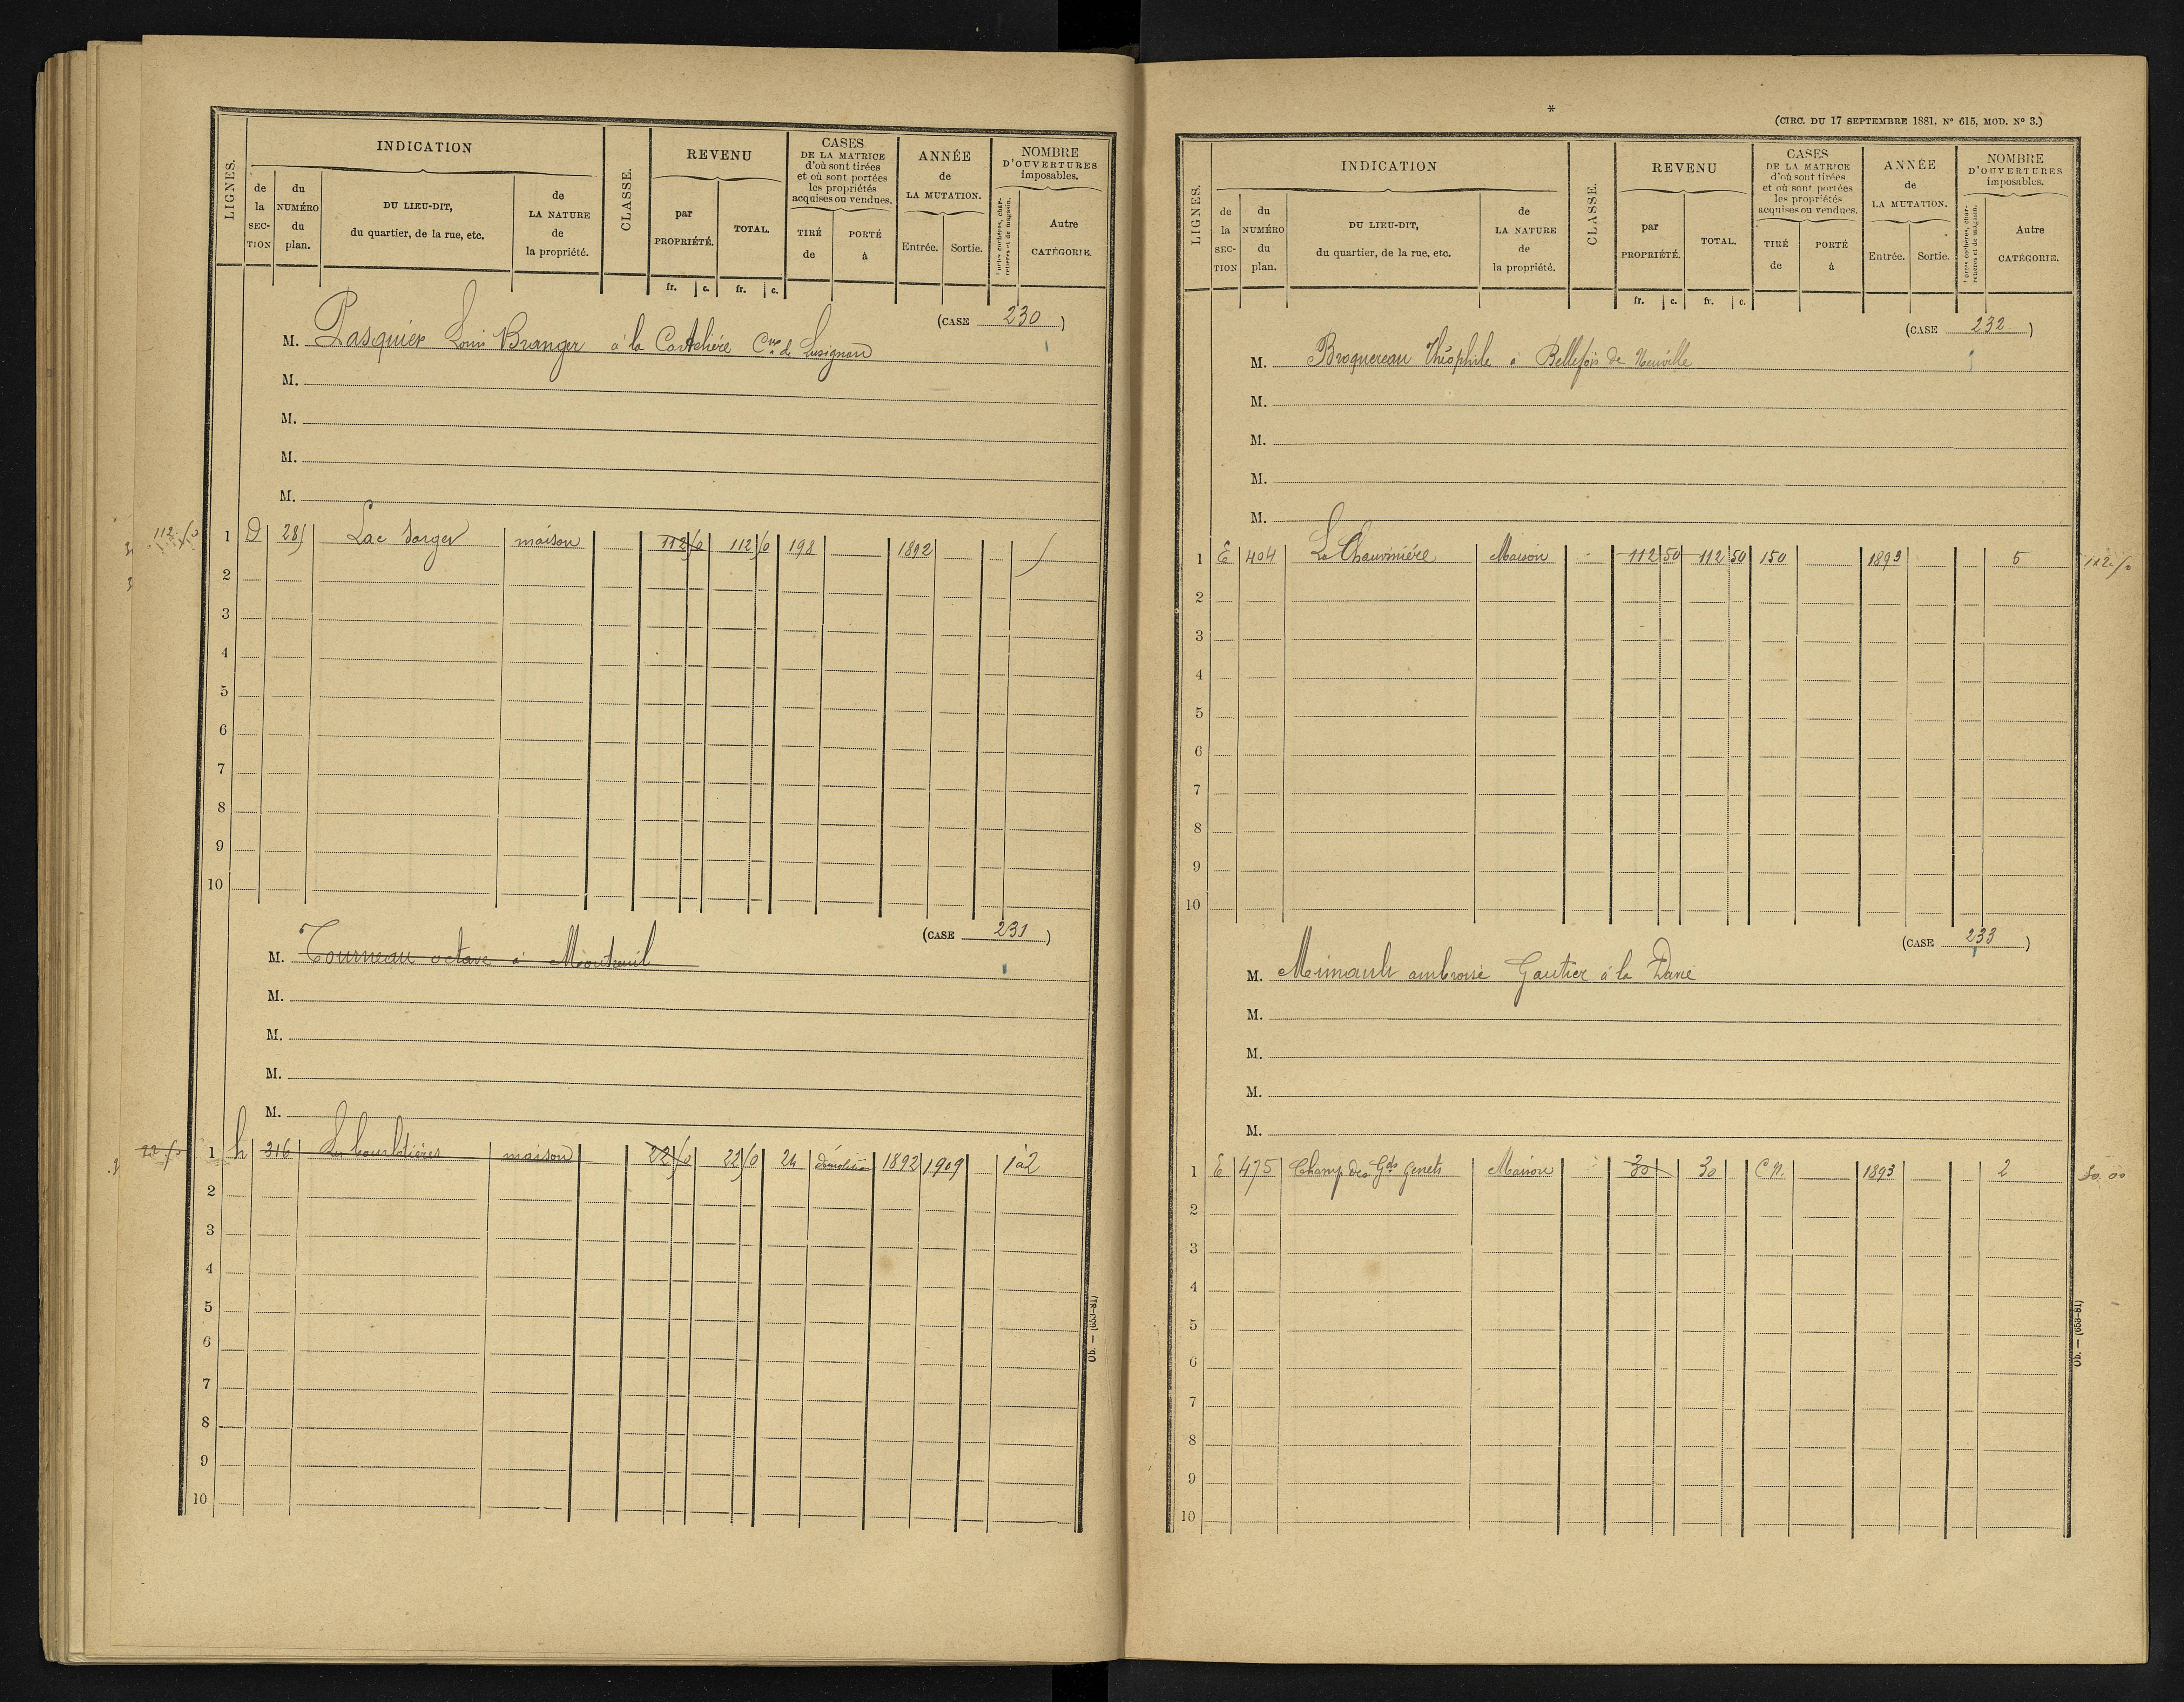 LIGNES.
INDICATION
de la SECTION
du NUMÉRO du plan.
DU LIEU-DIT, du quartier, de la rue, etc.
de LA NATURE de la propriété.
CLASSE.
REVENU
par PROPRIÉTÉ.
TOTAL.
fr. c. fr. c.
CASES DE LA MATRICE d'où sont tirées et où sont portées les propriétés acquises ou vendues.
TIRÉ de
PORTÉ à
ANNÉE de LA MUTATION.
Entrée. Sortie.
NOMBRE D'OUVERTURES imposables.
Portes cochères, charretières et de magasin.
Autre CATÉGORIE.
(CASE 230)
M. Pasquier Louis Branger à la Cne de Lusignan
M.
M.
M.
M.
112.50 1 D 285 Lac maison 112 50 112 50 198 1892 5
2
3
4
5
6
7
8
9
10
(CASE 231)
M. Tourneau octave à Montreuil
M.
M.
M.
M.
22.50 1 h 316 Les maison 22 50 22 50 24 Démolition 1892 1909 1 à 2
2
3
4
5
6
7
8
9
10
Ob. — (653-81)
*
(CIRC. DU 17 SEPTEMBRE 1881, Nº 615, MOD. Nº 3.)
LIGNES.
INDICATION
de la SECTION
du NUMÉRO du plan.
DU LIEU-DIT, du quartier, de la rue, etc.
de LA NATURE de la propriété.
CLASSE.
REVENU
par PROPRIÉTÉ.
TOTAL.
fr. c. fr. c.
CASES DE LA MATRICE d'où sont tirées et où sont portées les propriétés acquises ou vendues.
TIRÉ de
PORTÉ à
ANNÉE de LA MUTATION.
Entrée. Sortie.
NOMBRE D'OUVERTURES imposables.
Portes cochères, charretières et de magasin.
Autre CATÉGORIE.
(CASE 232)
M. Broquereau Théophile à Bellefois de Neuville
M.
M.
M.
M.
1 E 404 La Chaumière Maison 112 50 112 50 150 1893 5 112.50
2
3
4
5
6
7
8
9
10
(CASE 233)
M. Minault ambroise Gautier à la
M.
M.
M.
M.
1 E 475 Champ des Gds Genets Maison 30 30 C.n. 1893 2 30.00
2
3
4
5
6
7
8
9
10
Ob. — (653-81)